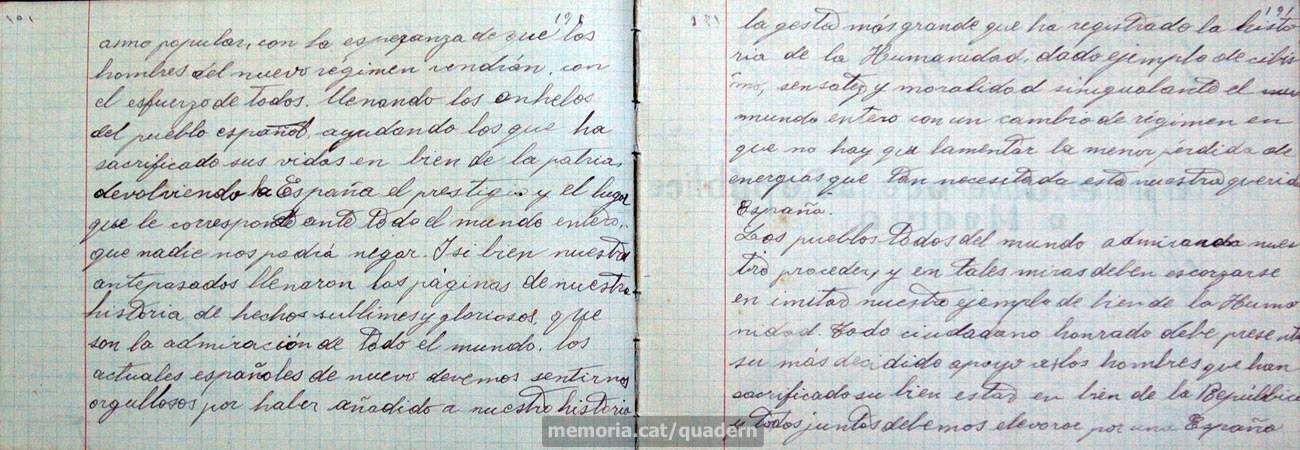 191
198
asmo popular, con la esperanza de que los
hombres del nuevo régimen vendrán, con
el esfuerzo de todos, llenando los anhelos
del pueblo español, ayudando los que ha
sacrificado sus vidas en bien de la patria,
devolviendo la España el prestigio y el lugar
que le corresponde ante todo el mundo entero,
que nadie nos podrá negar. I si bien nuestra
antepasados llenaron las páginas de nuestra
historia de hechos sublimes y gloriosos, que
son la admiración de todo el mundo, los
actuales españoles de nuevo devemos sentirnos
orgullosos por haber añadido a nuestra historia
la gesta más grande que ha registrado la histo
ria de la Humanidad, dado ejemplo de cibis
mo, sensatez y moralidad sinigual ante el
mundo entero con un cambio de régimen en
que no hay que lamentar la menor perdida de
energias que tan necesitada esta nuestra querida
España.
Los pueblos todos del mundo admiran nues
tro proceder, y en tales miras deben escorzarse
en imitar nuestro ejemplo de bien de la Huma
nidad. Todo ciudadano honrado debe presenta
su más decidido apoyo a los hombres que han
sacrificado su bien estar en bien de la República
y todos juntos debemos elevarse por una España
memoria.cat/quadern